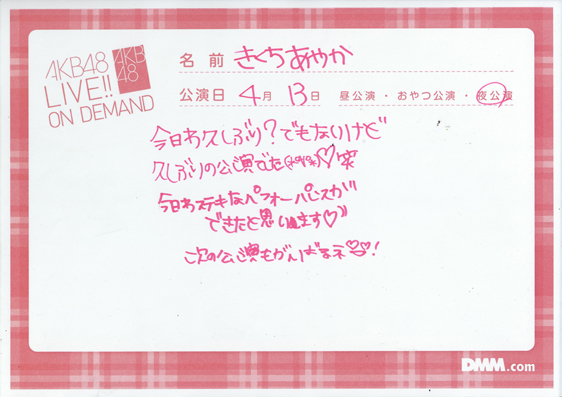 AKB48
LIVE!!
ON DEMAND
AKB
48
名前 きくちあやか
公演日 4月 13日 昼公演・おやつ公演・夜公演
今日わ久しぶり?でもないけど
久しぶりの公演でした♡笑
今日わステキなパフォーマンスが
できたと思います♡
次の公演もがんばるネ!
DMM.com